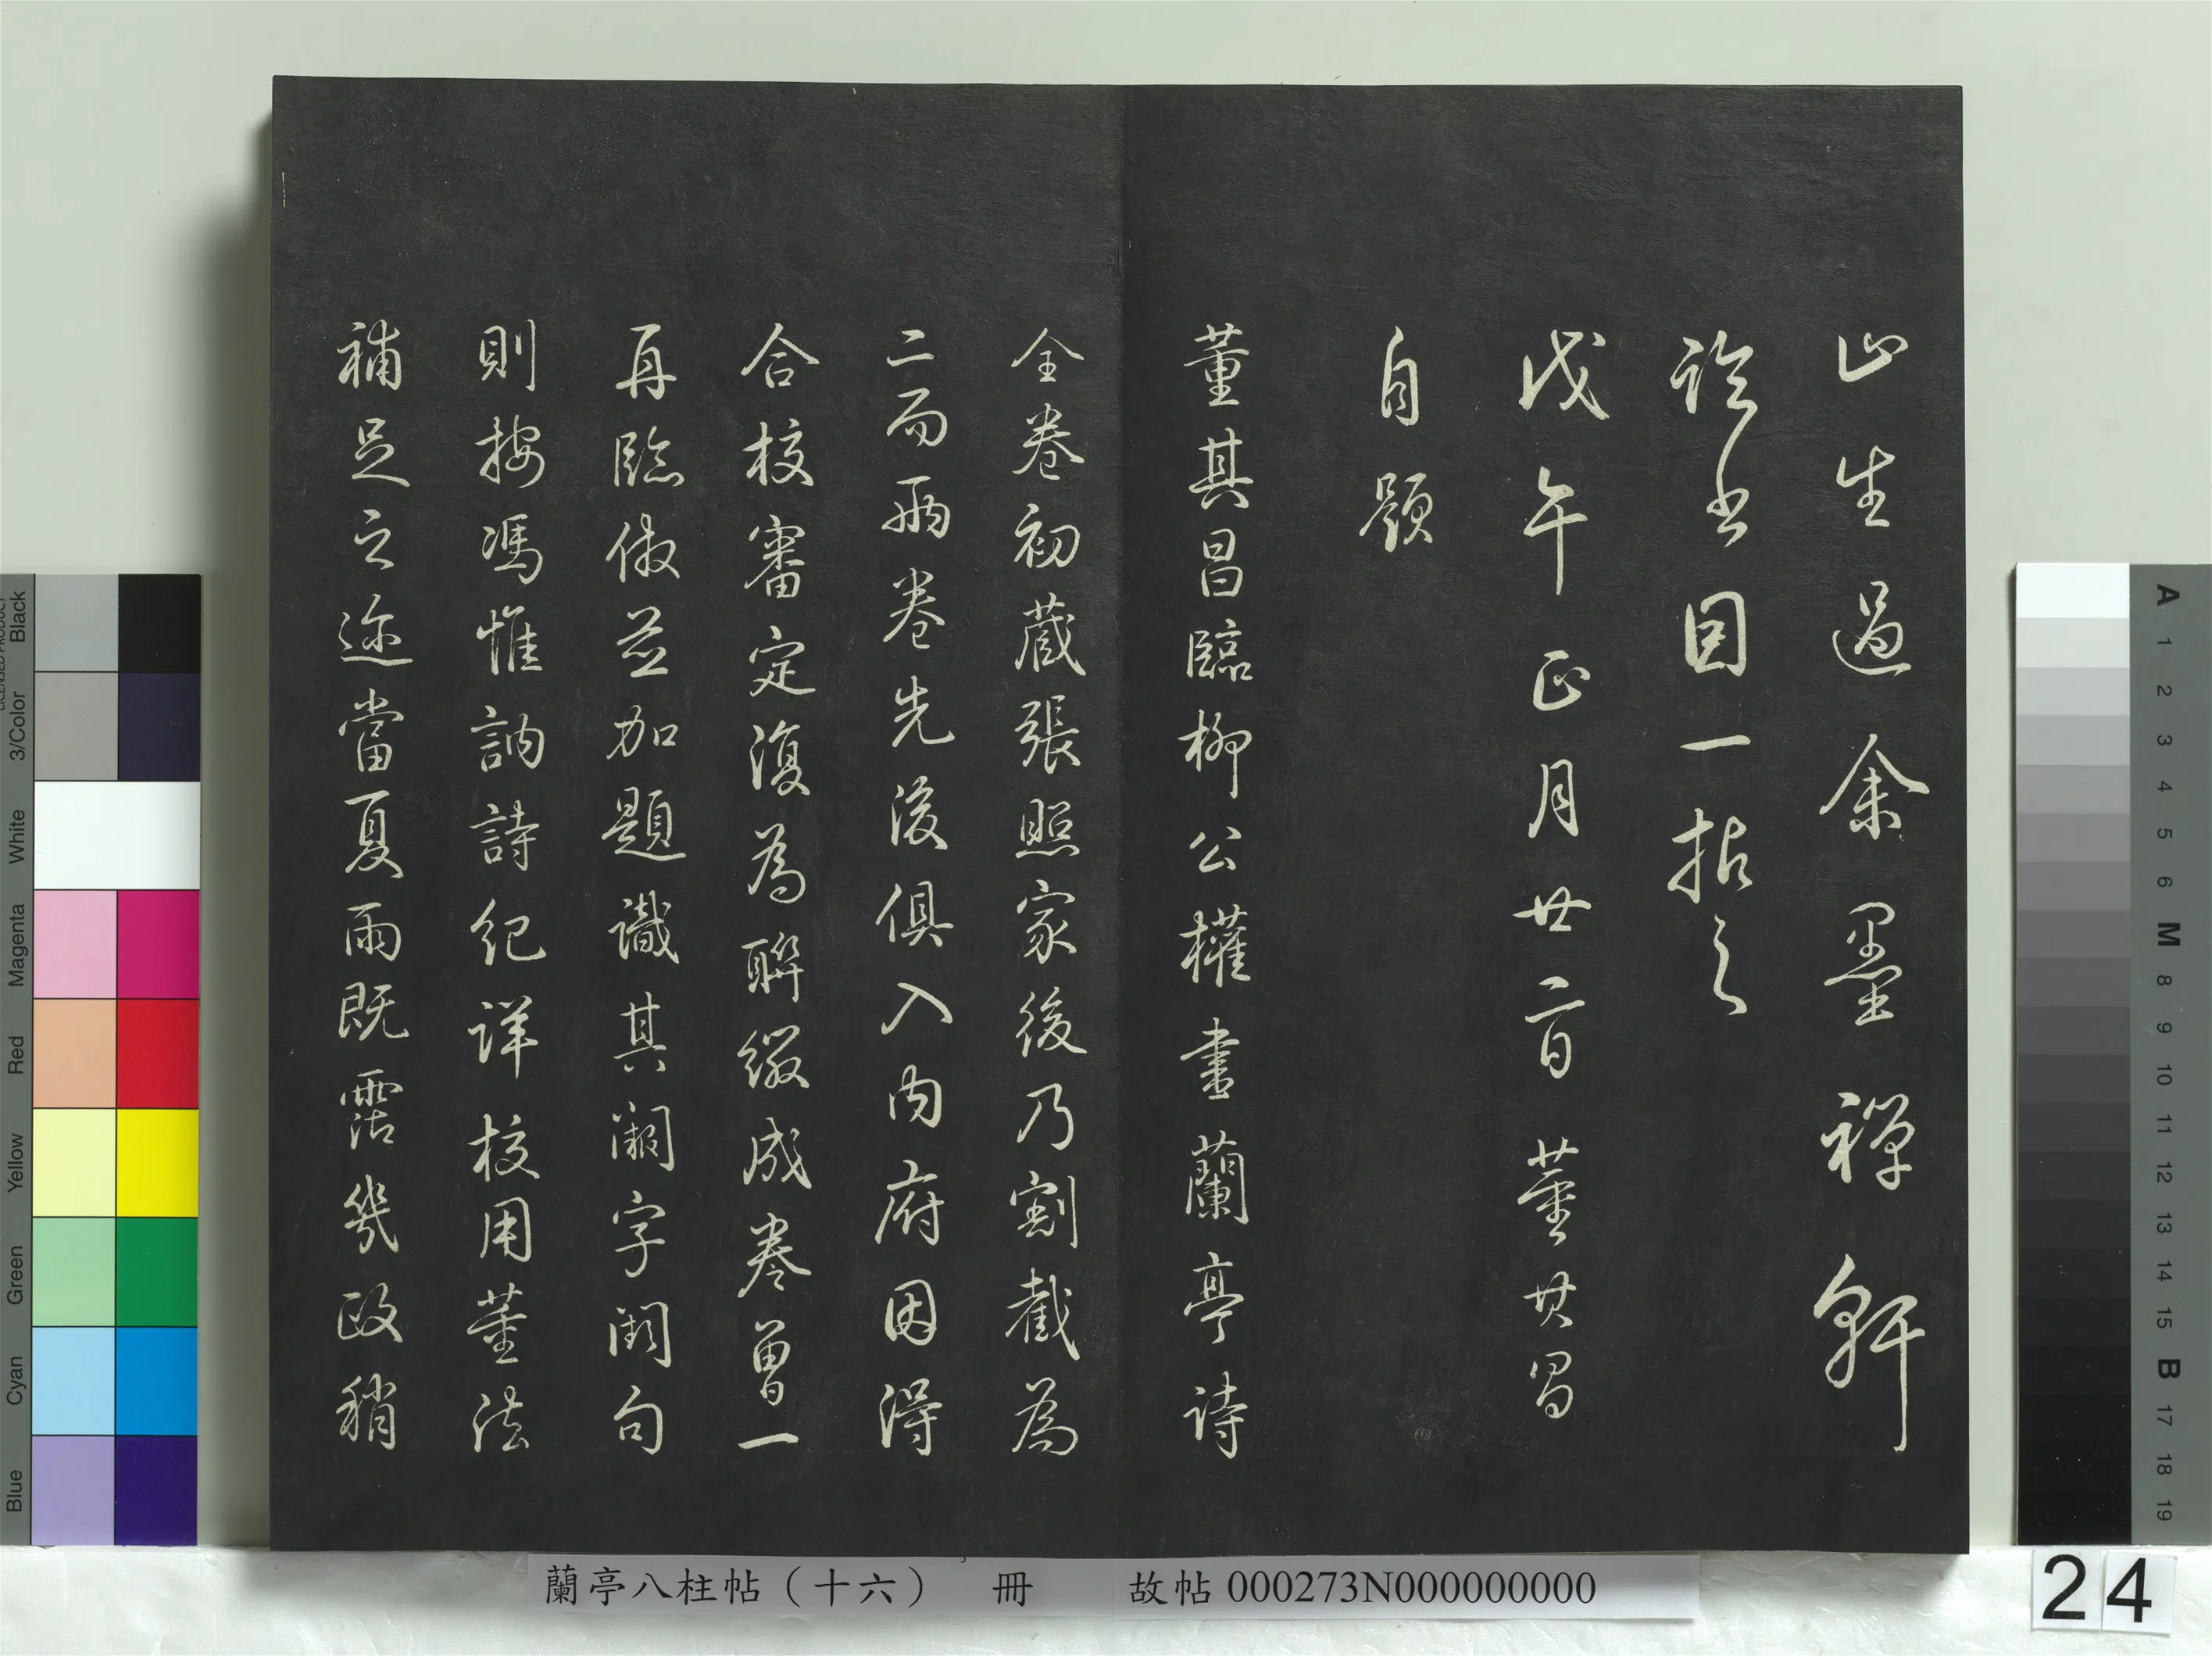 山生過余墨禪軒
論書因一拈之
戊午正月廿二日 董其昌
自題
董其昌臨柳公權書蘭亭詩
全卷初藏張照家後乃割截為
二而兩卷先後俱入內府因得
合校審定復為聯綴成卷曾一
再臨倣並加題識其闕字闕句
則按馮惟訥詩紀詳校用董法
補足之迩當夏雨既霑幾政稍
蘭亭八柱帖（十六） 冊 故帖000273N000000000
24
Black
3/Color
White
Magenta
Red
Yellow
Green
Cyan
Blue
A 1 2 3 4 5 6 M 8 9 10 11 12 13 14 15 B 17 18 19